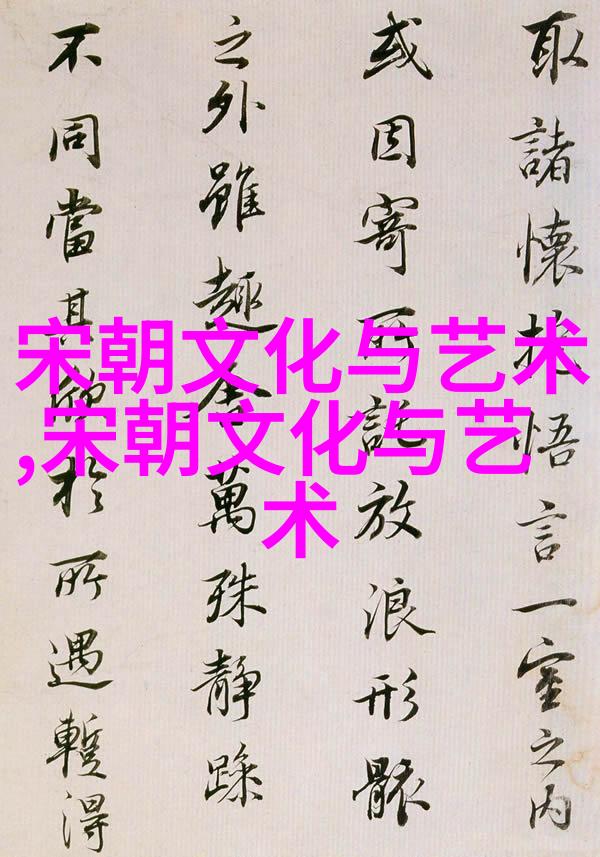 取諸懷抱悟言一室之内
或因寄所託放浪形骸
之外雖趣舍萬殊静躁
不同當其欣於所遇暫得
宋朝文化与艺术
,宋朝文化与艺
术